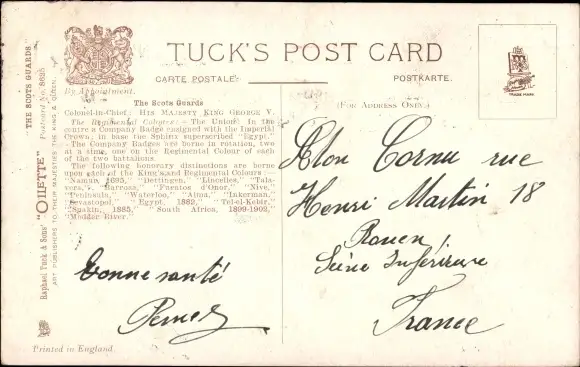 TUCK'S POST CARD
CARTE POSTALE.
POSTKARTE.
By Appointment.
(FOR ADDRESS ONLY.)
TRADE MARK.
"THE SCOTS GUARDS."
Raphael Tuck & Sons' "OILETTE" Postcard No. 8625
ART PUBLISHERS TO THEIR MAJESTIES THE KING & QUEEN.
The Scots Guards
Colonel-in-Chief: HIS MAJESTY KING GEORGE V.
The Regimental Colours:- The Union: In the
centre a Company Badge ensigned with the Imperial
Crown; in base the Sphinx superscribed "Egypt."
The Company Badges are borne in rotation, two
at a time, one on the Regimental Colour of each
of the two battalions.
The following honorary distinctions are borne
upon each of the King's and Regimental Colours:-
"Namur, 1695," "Dettingen," "Lincelles," "Tala-
vera," "Barrosa," "Fuentes d'Onor," "Nive,"
"Peninsula," "Waterloo," "Alma," "Inkerman,"
"Sevastopol," "Egypt, 1882," "Tel-el-Kebir,"
"Suakin, 1885," "South Africa, 1899-1902,"
"Modder River."
Cornu rue
Henri Martin 18
Rouen
Seine Inférieure
France
Bonne santé
Printed in England.